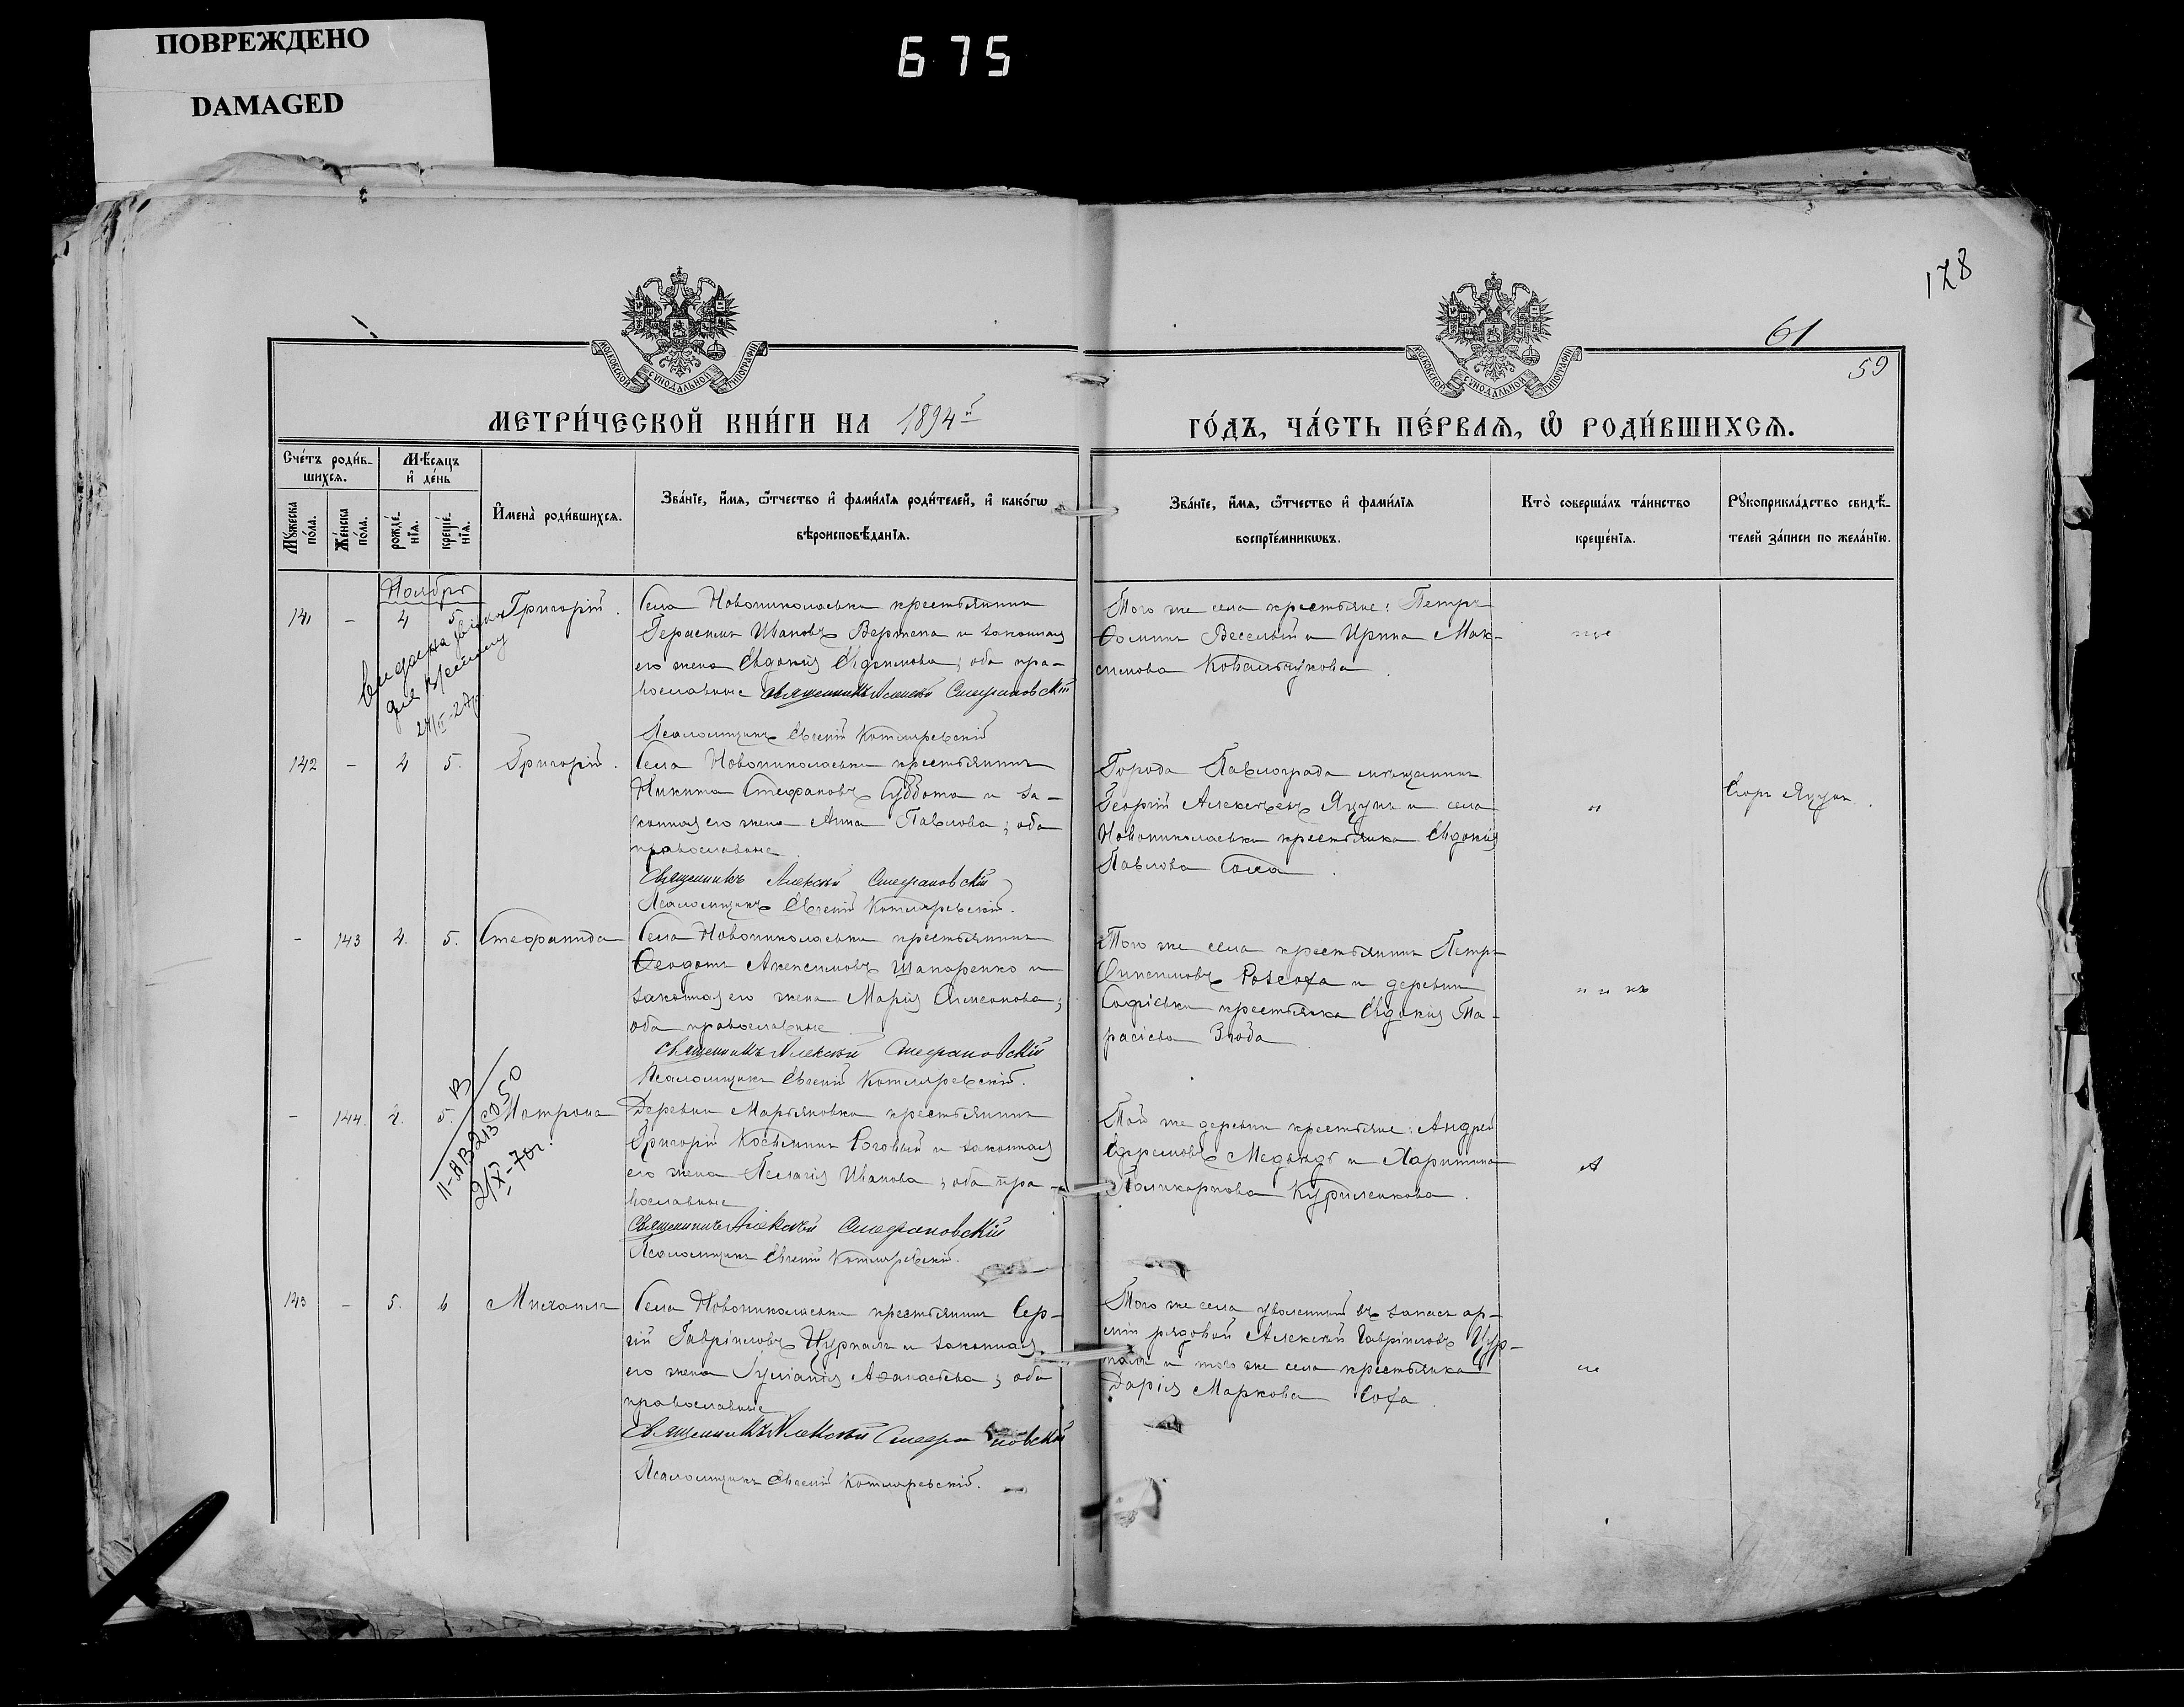 ПОВРЕЖДЕНО
DAMAGED
675
128
61
59
МОСКОВСКОЙ СУНОДАЛЬНОЙ ТИПОГРАФІИ
МОСКОВСКОЙ СУНОДАЛЬНОЙ ТИПОГРАФІИ
МЕТРИ́ЧЕСКОЙ КНИ́ГИ НА 1894 й
ГО́ДЪ, ЧА́СТЬ ПЕ́РВАѦ, Ѡ РОДИ́ВШИХСѦ.
Сче́тъ роди́в-
шихсѧ.
Мꙋ́жеска по́ла.
Же́нска по́ла.
Мѣ́сѧцъ и҆ де́нь
рожде́-
нїѧ.
креще́-
нїѧ.
И҆мена̀ роди́вшихсѧ.
Зва́нїе, и҆́мѧ, ѻ҆́тчество и҆ фами́лїѧ роди́телей, и҆ како́гѡ
вѣроисповѣ́данїѧ.
Зва́нїе, и҆́мѧ, ѻ҆́тчество и҆ фами́лїѧ
воспрїе́мникѡвъ.
Кто̀ соверша́лъ та́инство
креще́нїѧ.
Рꙋкоприкла́дство свидѣ́-
телей за́писи по жела́нїю.
Ноябрь
141 - 4 5 Григорій.
Села Новониколаевки крестьянинъ
Герасимъ Ивановъ Вертепа и законная
его жена Евдокія Евдокимова; оба пра-
вославные Священникъ Алексѣй Стефановскій
Псаломщикъ Евгеній Котляревскій
Того же села крестьяне: Петръ
Ѳоминъ Веселый и Ирина Мак-
симова Ковальчукова.
142 - 4 5. Григорій.
Села Новониколаевки крестьянинъ
Никита Стефановъ Суббота и за-
конная его жена Анна Павлова; оба
православные.
Священникъ Алексѣй Стефановскій
Псаломщикъ Евгеній Котляревскій.
Города Павлограда мѣщанинъ
Георгій Алексѣевъ Яцунъ и села
Новониколаевки крестьянка Евдокія
Павлова Соха.
Егоръ Яцунъ.
- 143 4. 5. Стефанида
Села Новониколаевки крестьянинъ
Ѳеодотъ Акенсимовъ Шапаренко и
законная его жена Марія Симеонова;
оба православные.
Священникъ Алексѣй Стефановскій
Псаломщикъ Евгеній Котляревскій.
Того же села крестьянинъ Петръ
и деревни
Софіевки крестьянка Евдокія Та-
расіева
- 144. 2. 5. Матрона
Деревни Марьяновки крестьянинъ
Григорій Косьминъ Роговый и законная
его жена Пелагія Иванова; оба пра-
вославные
Священникъ Алексѣй Стефановскій
Псаломщикъ Евгеній Котляревскій.
Той же деревни крестьяне: Андрей
Ефремовъ Медвѣдь и Харитина
Поликарпова Куриленкова.
II-АВ 213050
2/XI-70г.
145 - 5. 6 Михаилъ
Села Новониколаевки крестьянинъ Сер-
гій Гавріиловъ Цурпалъ и законная
его жена Іуліанія Аѳанасьева; оба
православные
Священникъ Алексѣй Стефановскій
Псаломщикъ Евгеній Котляревскій.
Того же села уволенный въ запасъ ар-
міи рядовой Алексѣй Гавріиловъ Цур-
палъ и того же села крестьянка
Дарія Маркова Соха.